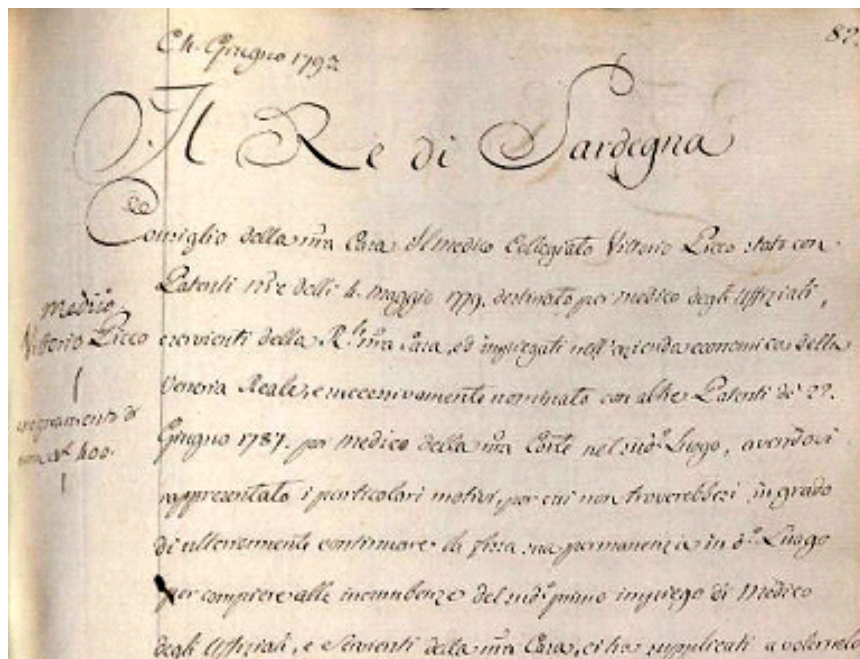 Giugno 1792
82
Il Re di Sardegna
Consiglio della nra Casa. Il medico Collegiato Vittorio Picco stato con
Patenti nre delli 4. Maggio 1779. destinato per medico degli Uffiziali,
medico
Vittorio Picco
e servienti della Rle nra Casa, ed impiegati nell'azienda economica della
Veneria Reale, e successivamente nominato con altre Patenti de' 22.
Giugno 1787. per medico della nra Corte nel sudo Luogo, avendoci
400.
rappresentato i particolari motivi, per cui non troverebbesi in grado
di ulteriormente continuare la fissa sua permanenza in do Luogo
per compiere alle incumbenze del sudo primo impiego di Medico
degli Uffiziali, e Servienti della nra Casa, ci ha supplicati a volernelo